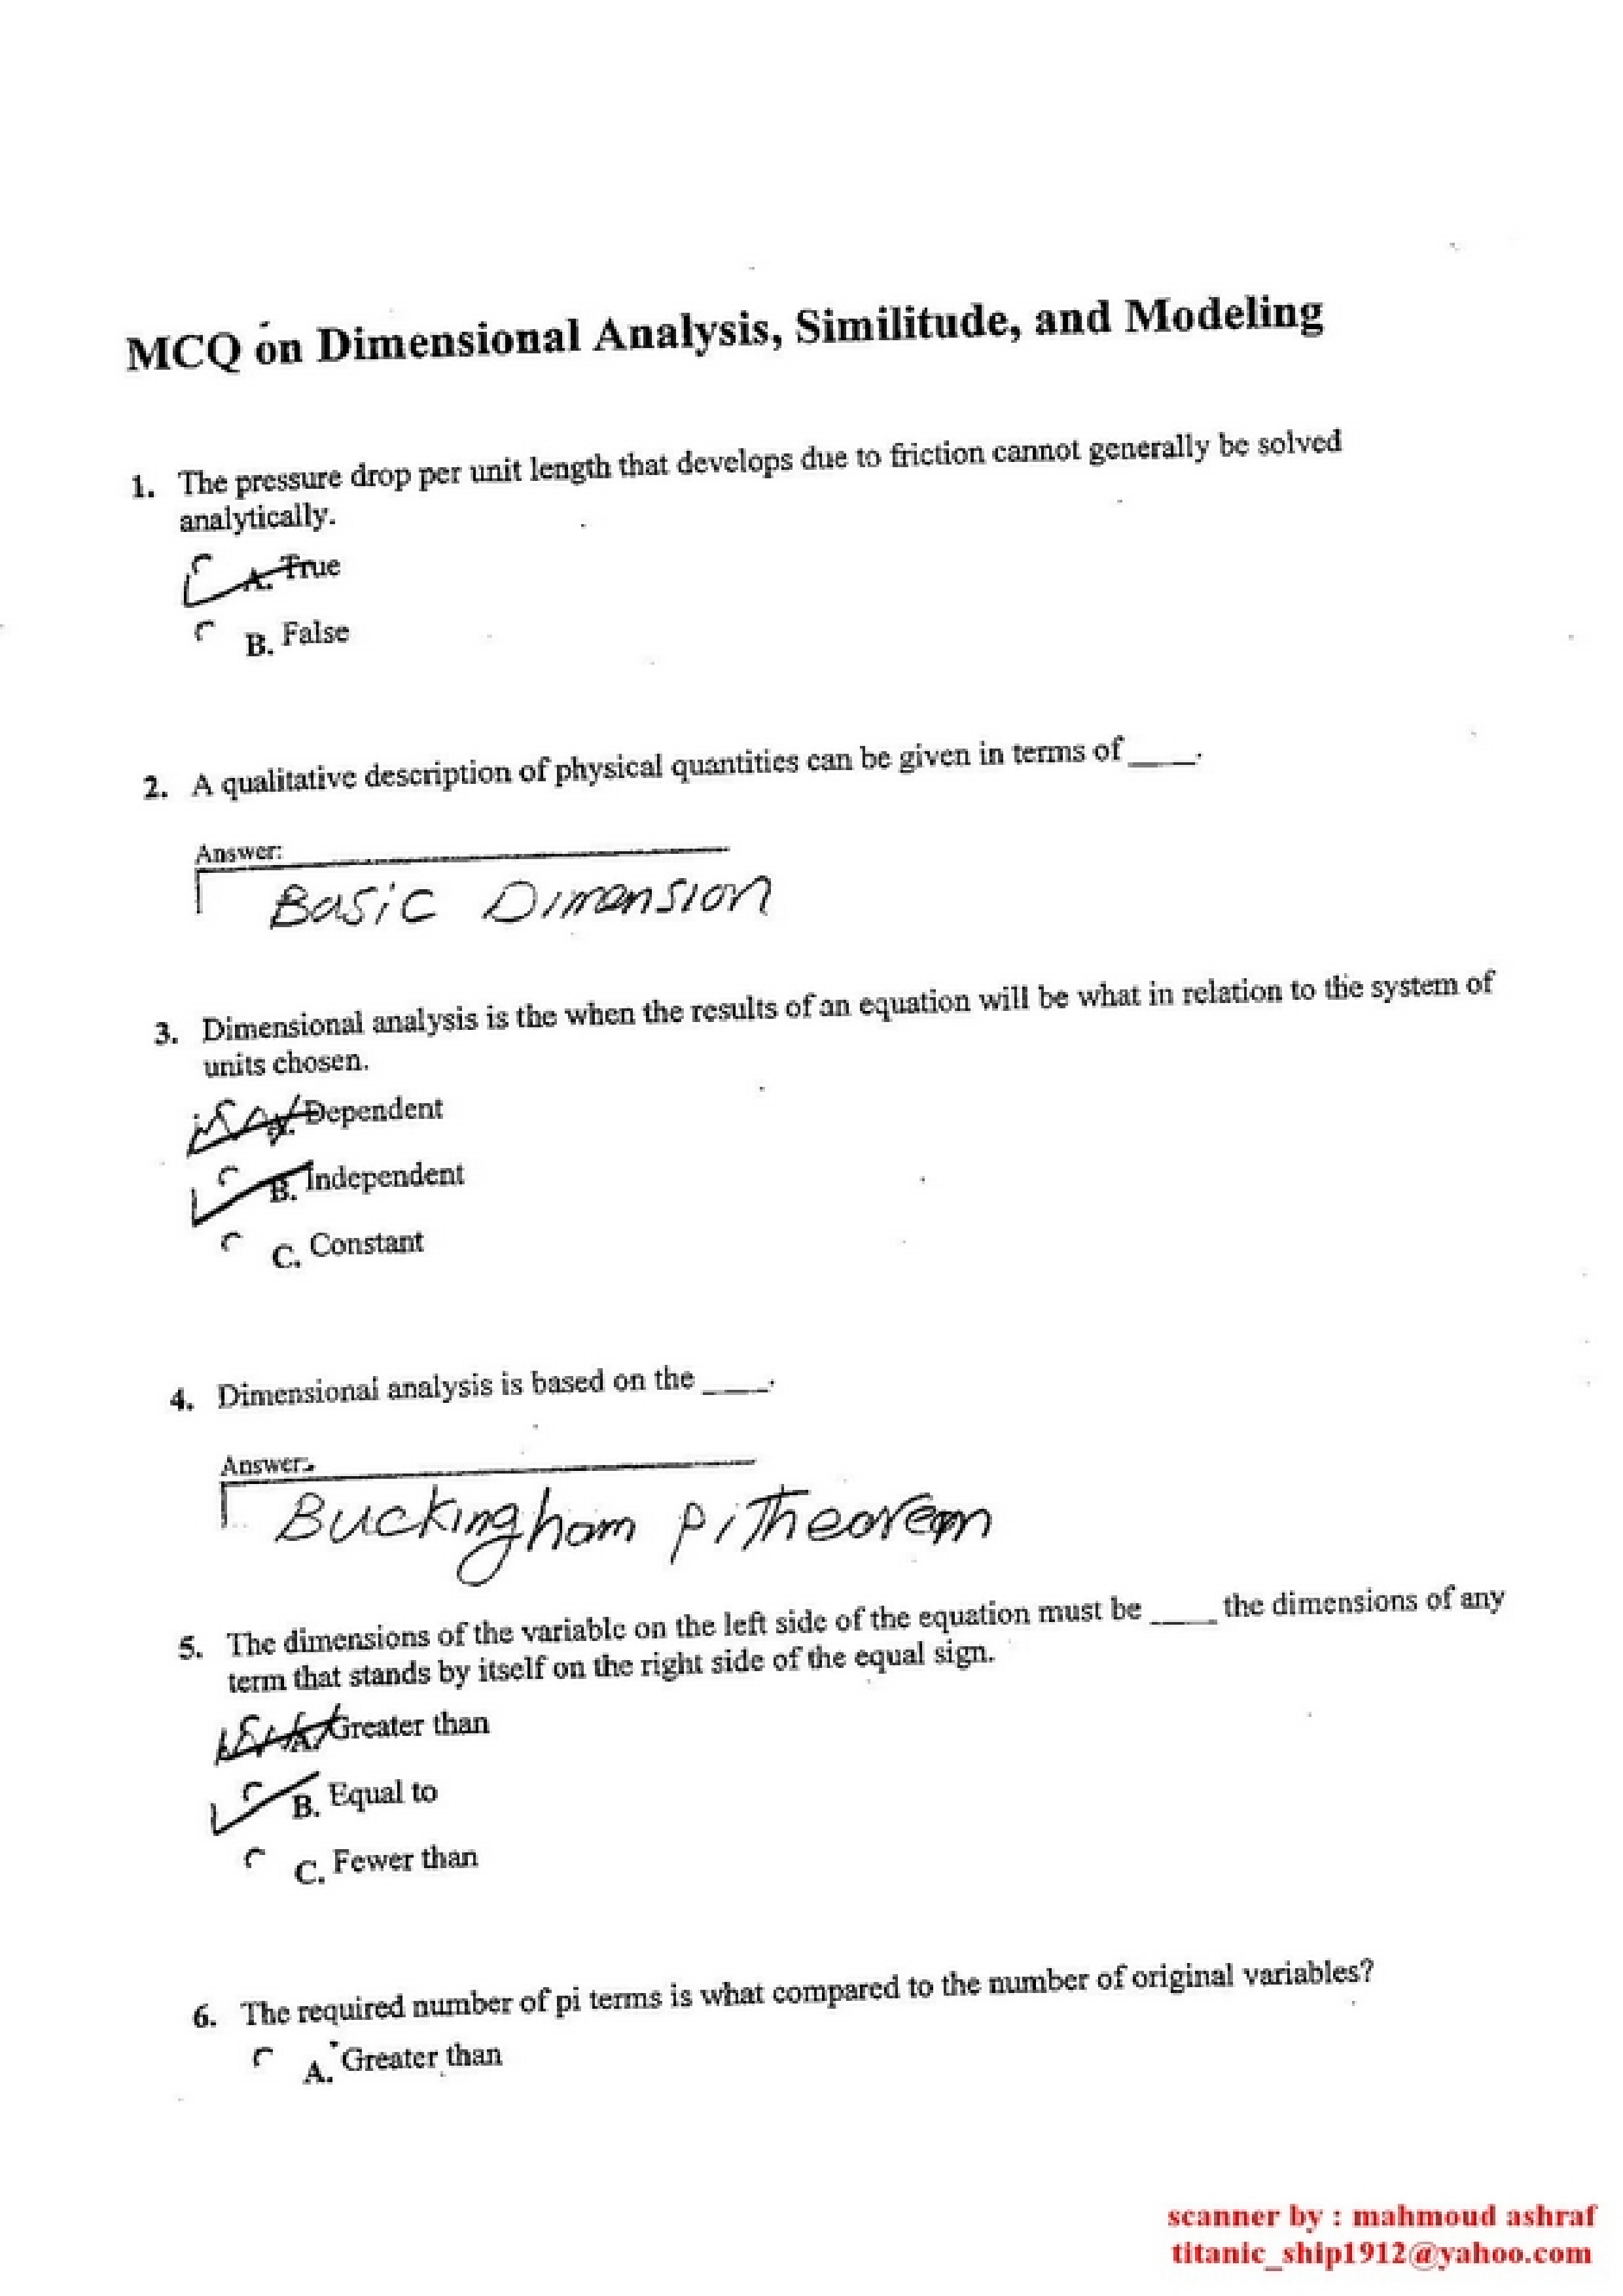 MCQ on Dimensional Analysis, Similitude, and Modeling
1. The pressure drop per unit length that develops due to friction cannot generally be solved
analytically.
A. True
B. False
2. A qualitative description of physical quantities can be given in terms of ____.
Answer:
Basic Dimension
3. Dimensional analysis is the when the results of an equation will be what in relation to the system of
units chosen.
A. Dependent
B. Independent
C. Constant
4. Dimensional analysis is based on the ____.
Answer:
Buckingham pi Theorem
5. The dimensions of the variable on the left side of the equation must be ____ the dimensions of any
term that stands by itself on the right side of the equal sign.
A. Greater than
B. Equal to
C. Fewer than
6. The required number of pi terms is what compared to the number of original variables?
A. Greater than
scanner by : mahmoud ashraf
titanic_ship1912@yahoo.com